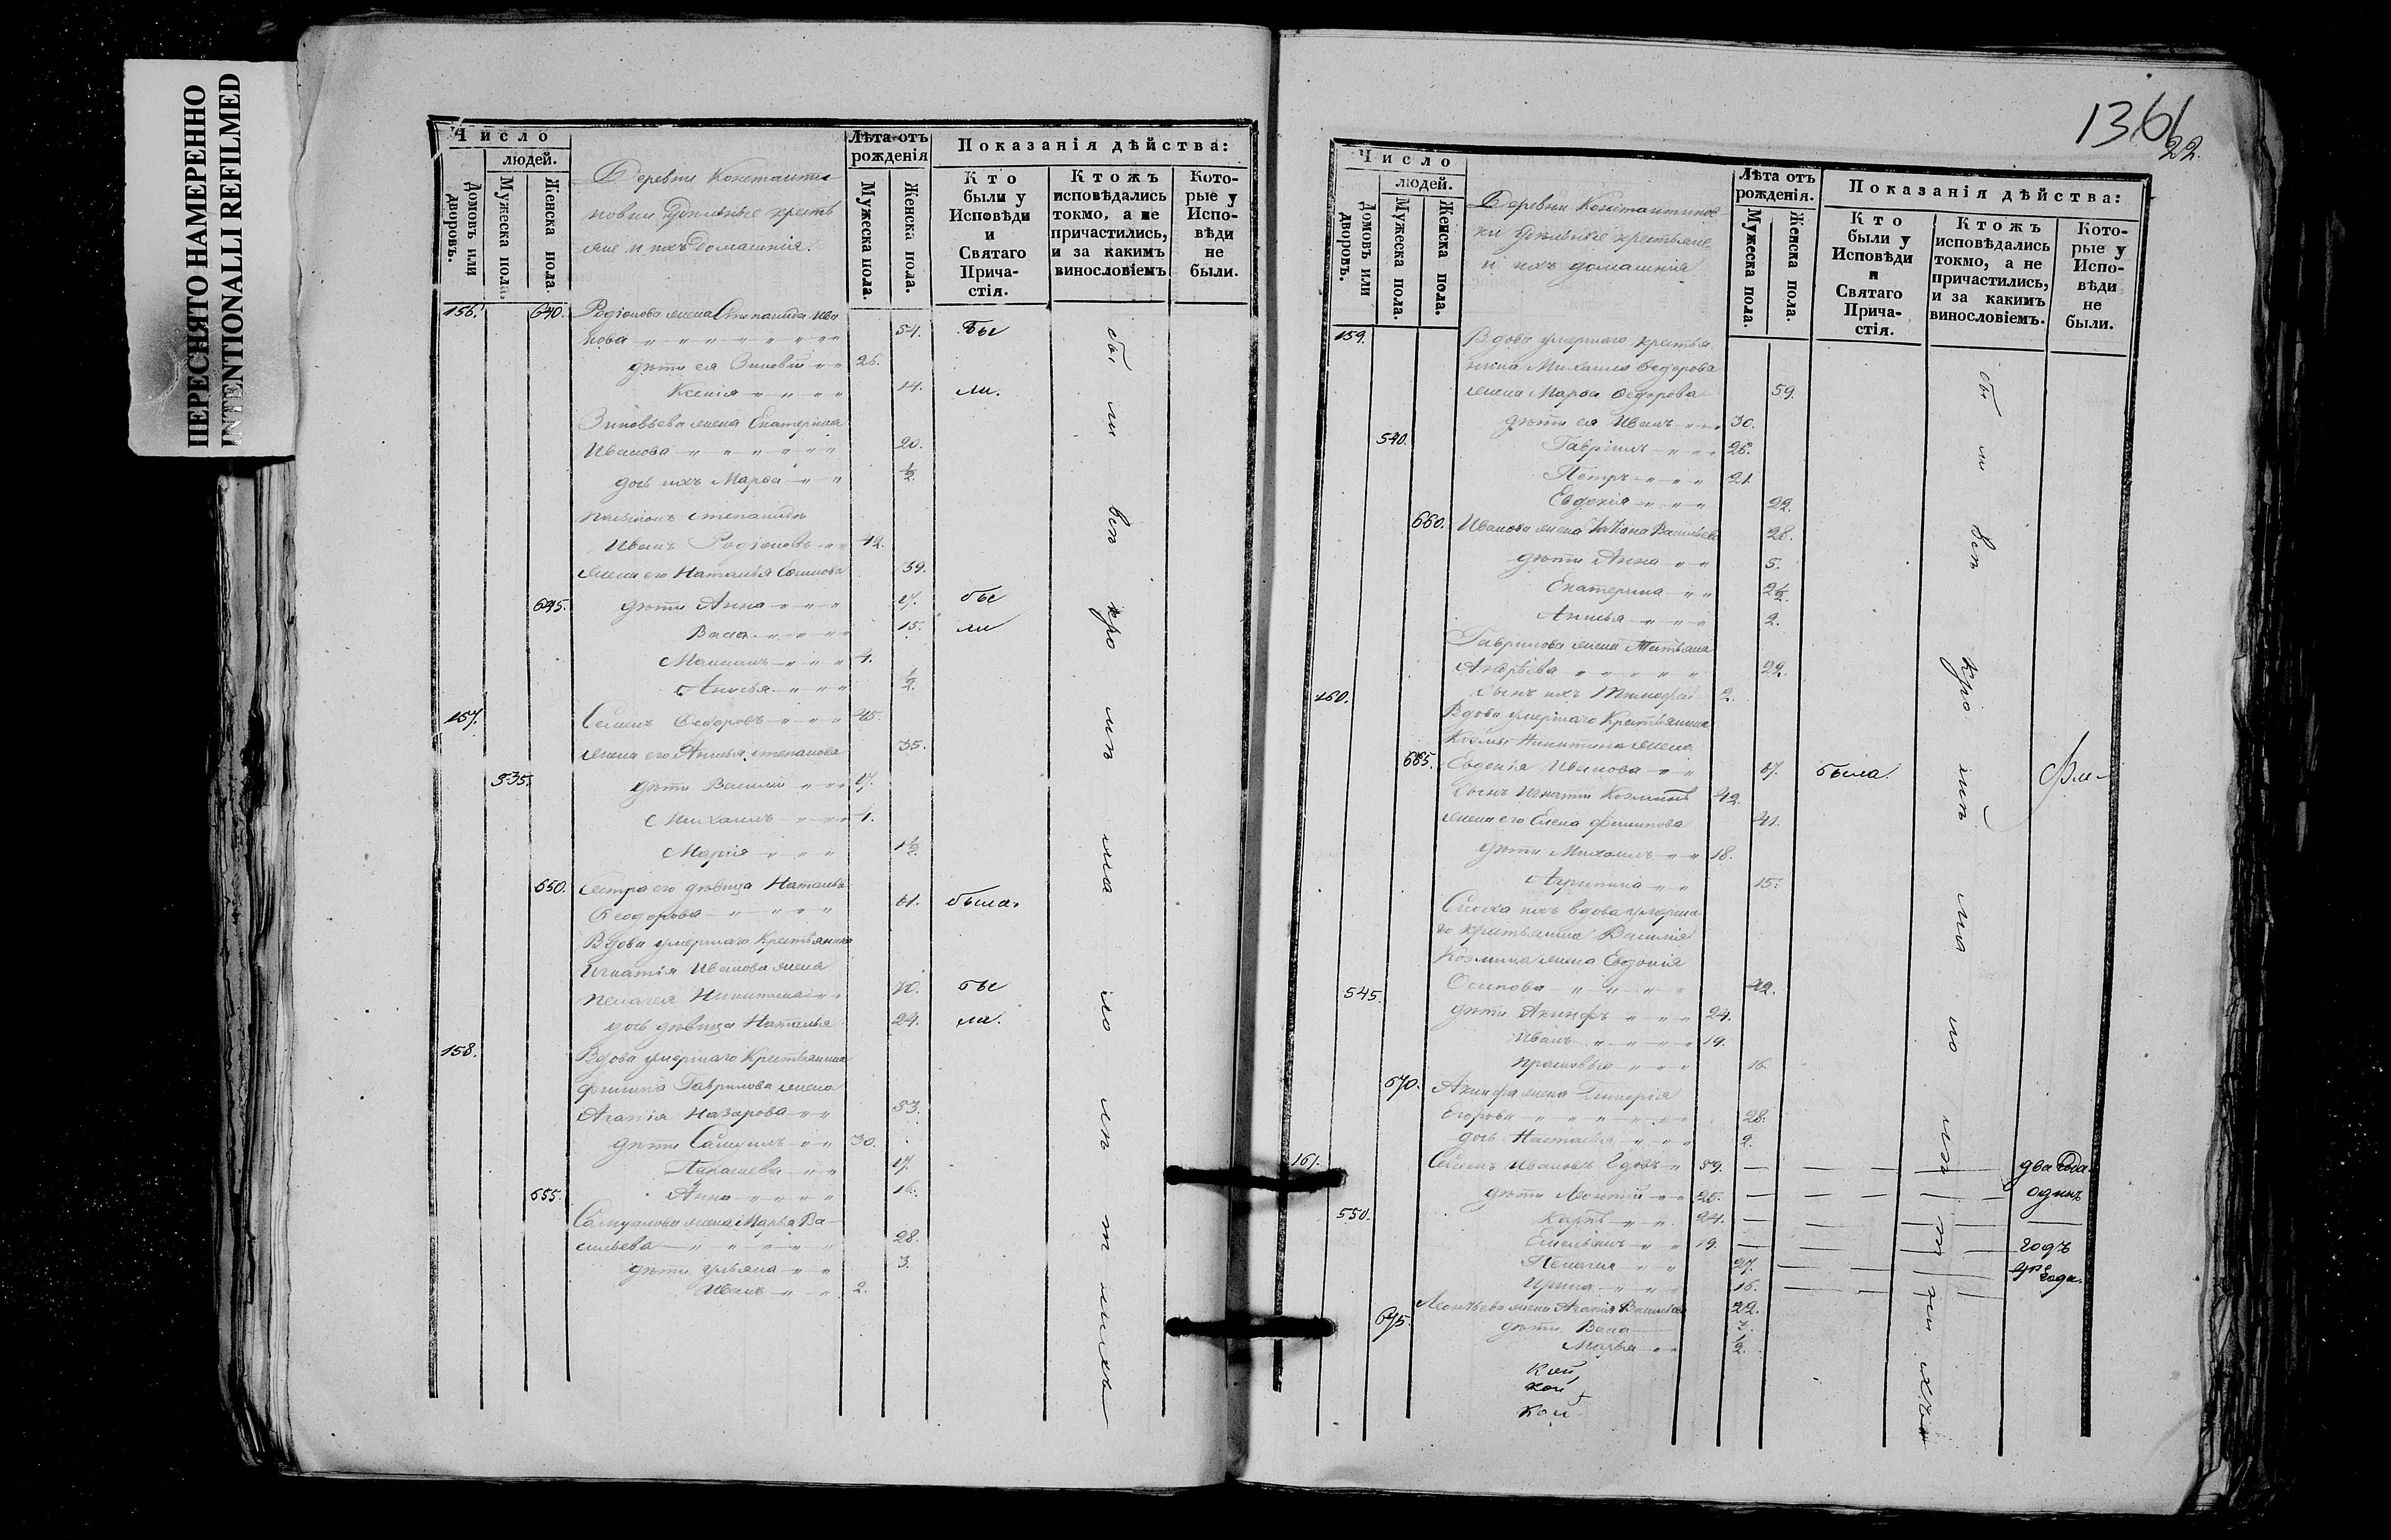 ПЕРЕСНЯТО НАМЕРЕННО
INTENTIONALLI REFILMED
Число
людей.
Домовъ или дворовъ.
Мужеска пола.
Женска пола.
Деревни Константи
новки Удѣльные кресть
яне и ихъ домашнія.
Лѣта отъ рожденія
Мужеска пола.
Женска пола.
Показанія дѣйства:
Кто были у Исповѣди и Святаго Прича-стія.
Ктожъ исповѣдались токмо, а не причастились, и за какимъ винословіемъ
Кото-рые у Испо-вѣди не были.
156. 640. Родіонова жена Степанида Ива
нова 54. Бы
дѣти ея Зиновій 26.
Ксенія 14. ли.
Зиновьева жена Екатерина
Иванова 20.
дочь ихъ Марѳа ½
Степаниды
Иванъ Родіоновъ 42.
жена его Наталья 39.
645. дѣти Анна 17. бы
Васса 15. ли
4.
Анисья ½
157. Семенъ Ѳедоровъ 45.
жена его Анисья Степанова 35.
535. дѣти Василій 17.
Михаилъ 4.
Марія 1½
650. Сестра его дѣвица Наталья
Ѳеодорова 61. была.
Вдова умершаго Крестьянина
Игнатія Иванова жена
Пелагея Никитина 70. бы
дочь дѣвица Наталья 24. ли.
158. Вдова умершаго Крестьянина
Филипа Гаврилова жена
Агапія Назарова 53.
дѣти Самуилъ 30.
17.
655. Анна 16.
Самуилова жена Марѳа Ва
сильева 28.
дѣти Ульяна 3.
Иванъ 2.
были всѣ кромѣ малолѣтнихъ
1361
22.
Число
людей.
Домовъ или дворовъ.
Мужеска пола.
Женска пола.
Деревни Константинов
ки Удѣльные крестьяне
и ихъ домашнія
Лѣта отъ рожденія.
Мужеска пола.
Женска пола.
Показанія дѣйства:
Кто были у Исповѣди и Святаго Прича-стія.
Ктожъ исповѣдались токмо, а не причастились, и за какимъ винословіемъ.
Кото-рые у Испо-вѣди не были.
159. Вдова умершаго крестья
нина Михаила Ѳедорова
жена Марѳа Ѳедорова 59.
дѣти ея Иванъ 30.
540. Гавріилъ 26.
Петръ 21.
Евдокія 22.
660. Иванова жена Татіана Васильева 28.
дѣти Анна 5.
Екатерина 2½
Анисья 2.
Гаврилова жена Татьяна
Андрѣева 22.
сынъ ихъ Тимоѳей 2.
160. Вдова умершаго Крестьянина
Козмы Никитина жена
665. Евдокія Иванова 67. была.
Сынъ Игнатій Козминъ 42.
жена его Елена Филипова 41.
дѣти Михаилъ 18.
Агрипина 15.
Сноха ихъ вдова умерша
го крестьянина Василія
Козмина жена Евдокія
Осипова 42.
545. дѣти Акинфъ 24.
Иванъ 19.
Прасковья 16.
670. Акинфа жена Гликерія
Егорова 28.
дочь Наталья 2.
161. Семенъ Ивановъ вдовъ 59. два года.
дѣти Леонтій 25. одинъ
550. Карпъ 24.
Емельянъ 19. годъ
Пелагея 27. три года.
Ирина 16.
Леонтьева жена Агапія Васильева 22.
675. дѣти Васса 3.
Марѳа ½
были всѣ кромѣ малолѣтнихъ